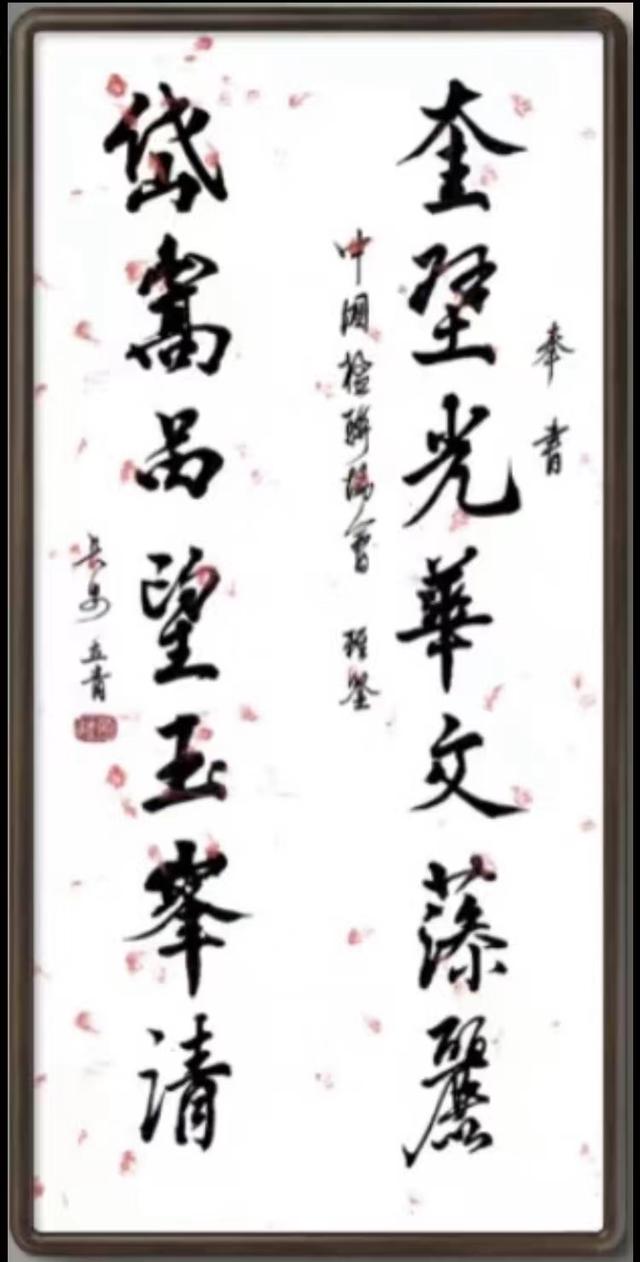 奉書
奎壁光華文藻麗
中國楹聯協會 雅鑒
岱嵩品望玉峯清
長安 立青